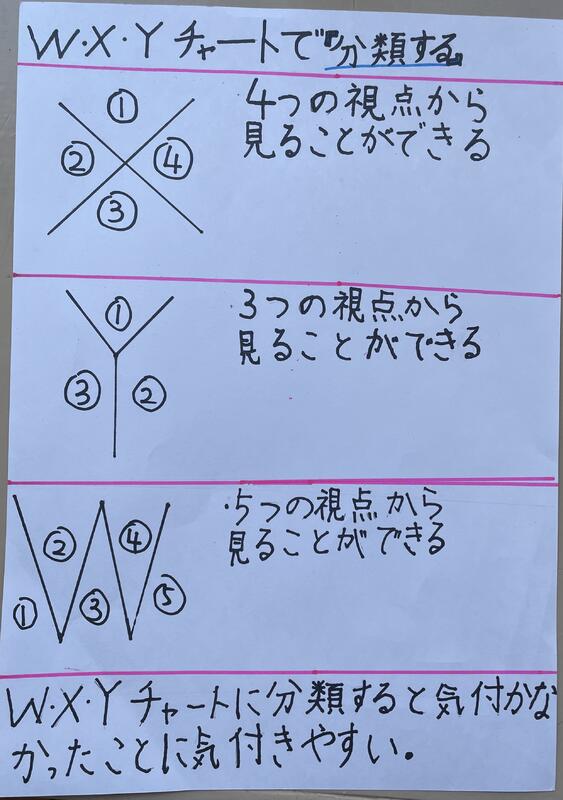 W・X・Yチャートで『分類する』
①
②
④
③
4つの視点から
見ることができる
①
③
②
・3つの視点から
見ることができる
②
④
①
③
⑤
・5つの視点から
見ることができる
W・X・Yチャートに分類すると気付かな
かったことに気付きやすい。